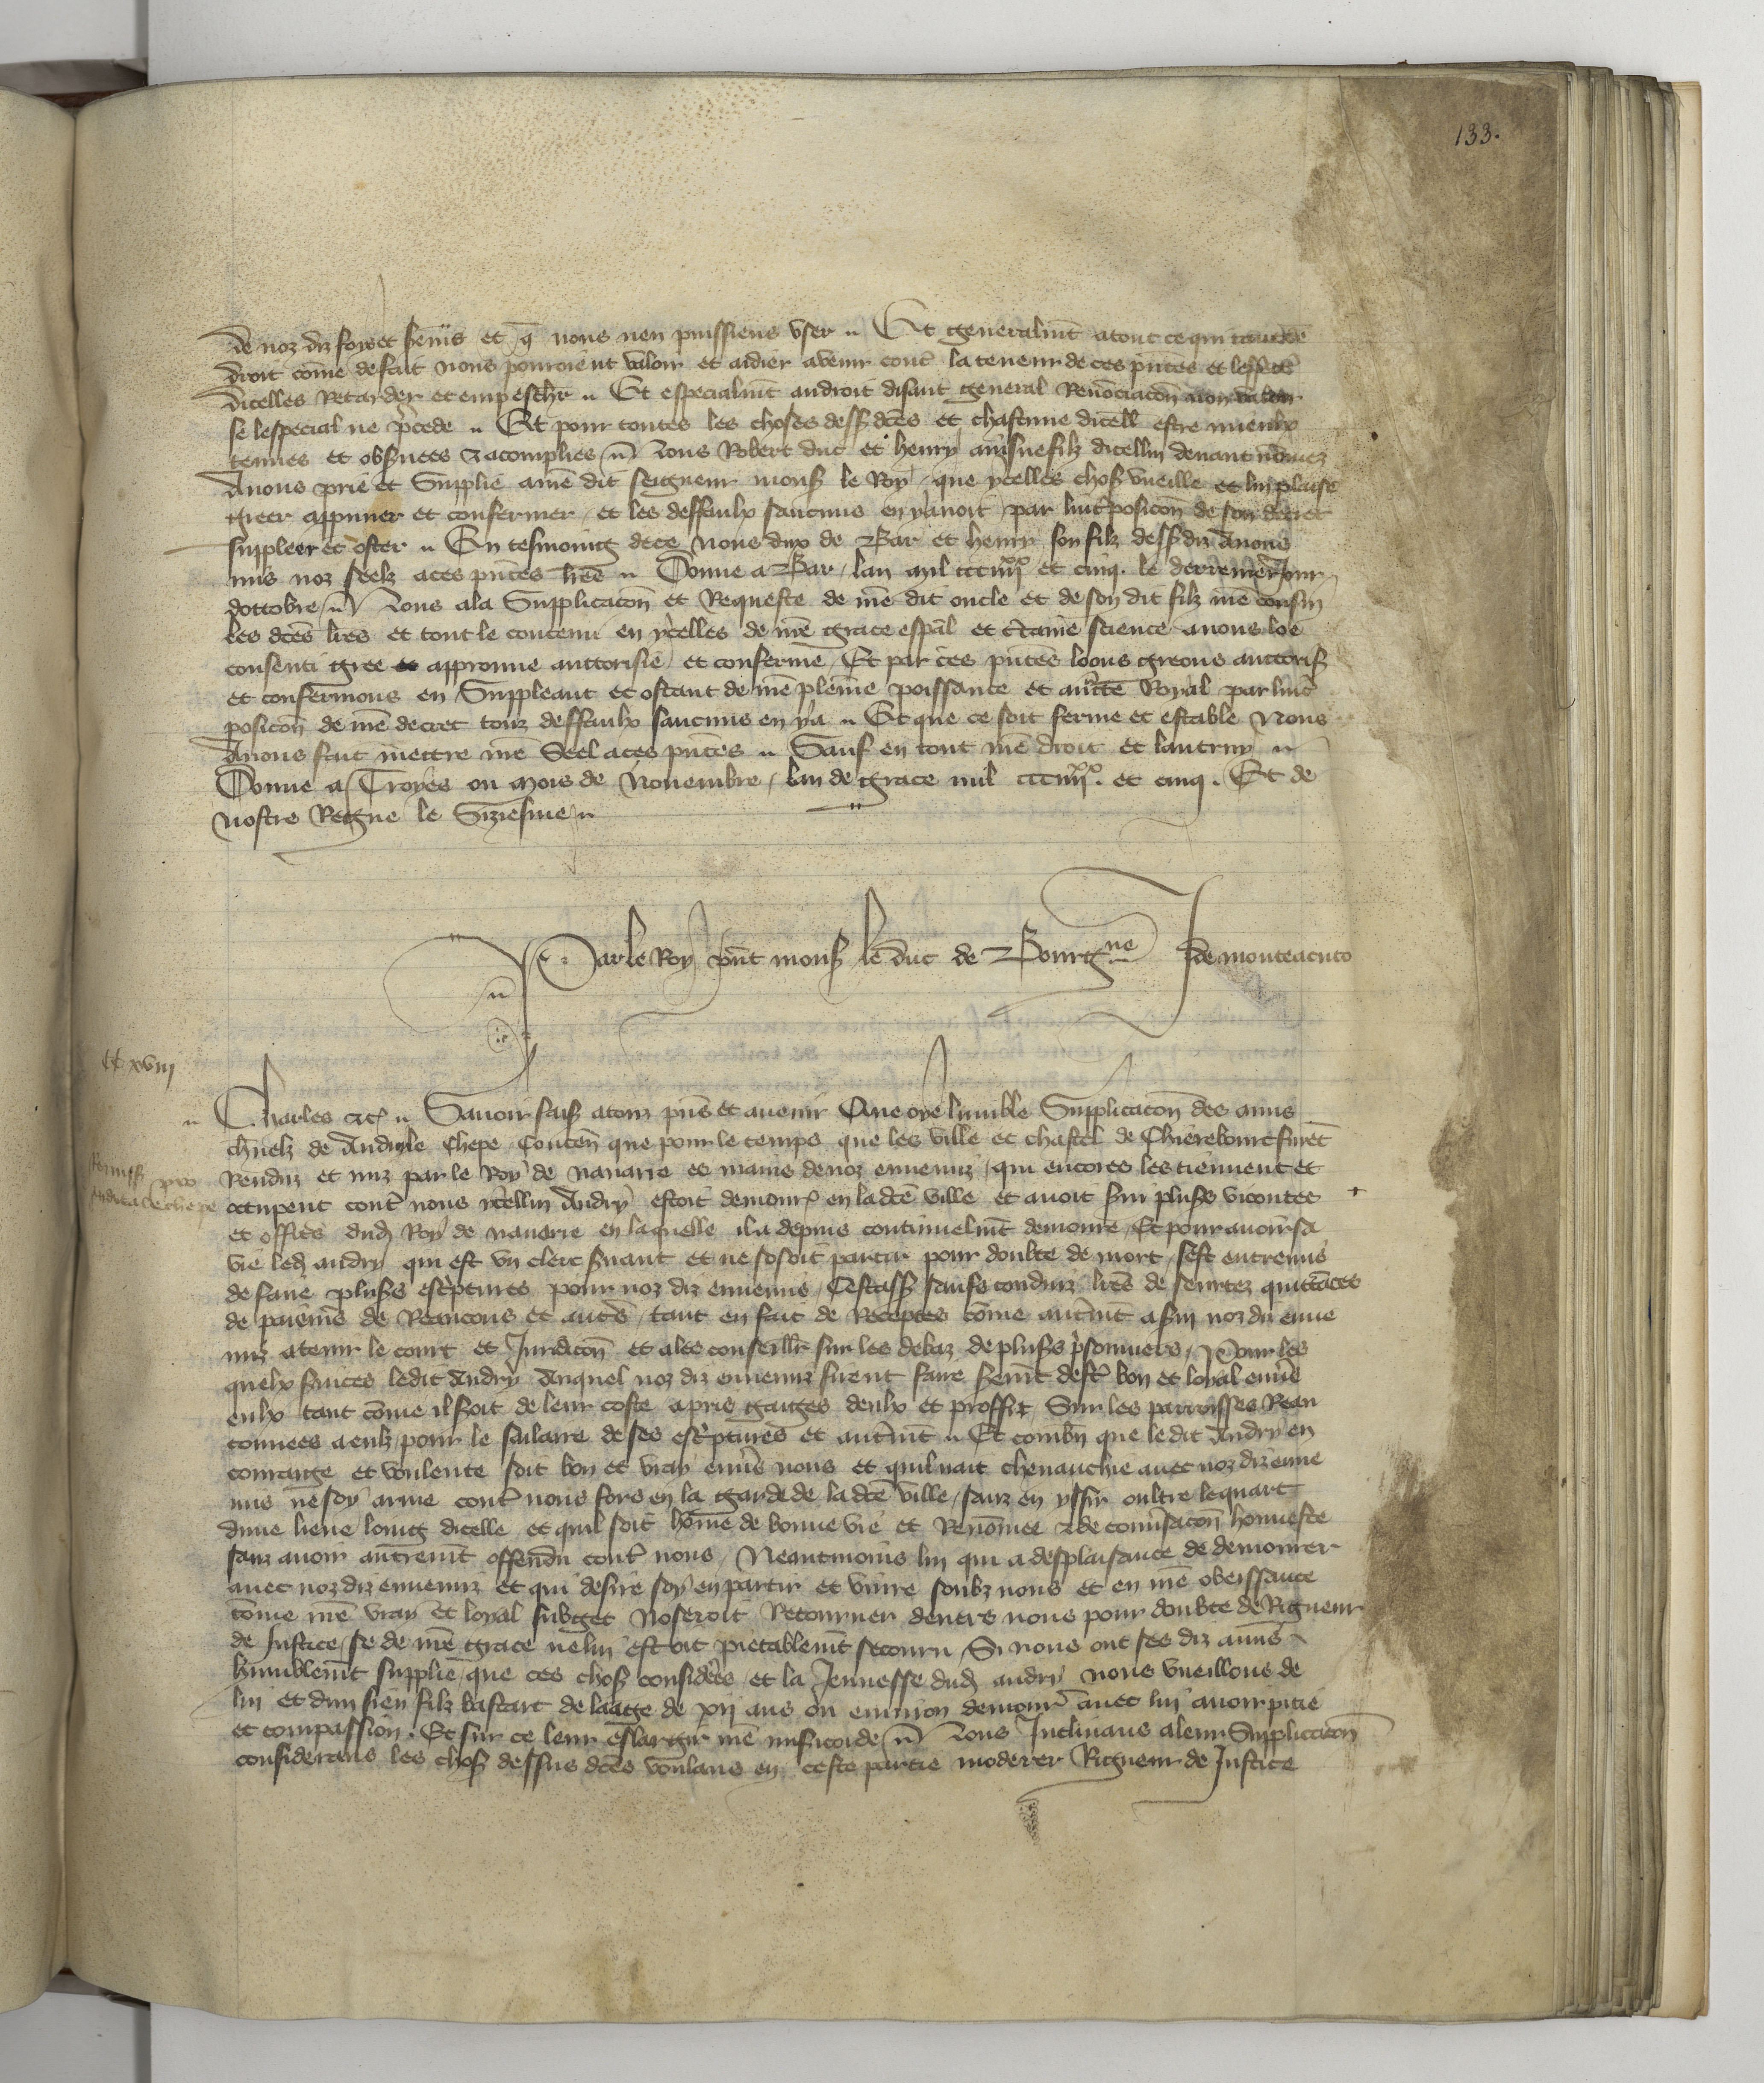 133.
de noz diz foy et seriis et q̄ nous nen puissiens vser Et generalmēt a tout ce qui tant de
droit com̄e de fait nous pourroient valoir et aidier a venir cont̄ la teneur de ces p̄ntes et leffct̄
dicelles Retarder et empeschr̄ Et especialmēt au droit disant general Renōciacōn non valoir
se lespecial ne p̄cede Et pour toutes les choses dessʒ dc̄es et chascune dicell estre mieulx
tenues et obs̄uees & acomplies Nous Robert duc et henry ainsnefilz dicellui deuant nōmez
Auons prie et Supplie a mē dit seigneur monsʒ le Roy que ycelles chosʒ vueille et lui plaise
greer appruuer et confermer et les deffaulx saucuns en y auoit par lint̄posicōn de son decret
suppleer et oster En tesmoing de ce Nous duc de Bar et henry son filz dessʒ diz Auons
mis noz seelz a ces p̄ntes lr̄es Donne a Bar lan mil ccc iiiixx et cinq. le derrenier Jour
dottobre Nous a la Supplicacōn et Requeste de mē dit oncle et de son dit filz mē cousin
les dc̄es lr̄es et tout le contenu en ycelles de mē grace esp̄al et c̄taine science auons loe
consenti gree et approuue auttorisie et conferme Et par ces p̄ntes loons greons auttorisʒ
et confermons en Suppleant et ostant de mē pleine poissance et auc̄tte Royal par lint̄
posicōn de mē decret touz deffaulx saucuns en y a Et que ce soit ferme et estable Nous
Auons fait mettre mē Seel a ces p̄ntes Sauf en tout mē droit et lautruy
Donne a Troyes ou mois de Nouembre lan de grace mil ccc iiiixx. et cinq. Et de
nostre Regne le Siziesme
Par le Roy p̄nt monsʒ le duc de Bourgne J de monteacuto
CC xviij
Charles &c̄ Sauoir faisʒ a touz p̄ns et auenir Que oye lumble Supplicacōn des amis
ch̄nelz de Andry le Chepe Conten̄ que pour le temps que les ville et chastel de Chierebourt furēt
Renduz et mis par le Roy de nauarre es mains de noz ennemis qui encores les tiennent et
Remissʒ pro
occupent cont̄ nous ycellui Andry estoit demour̄ en la dc̄e ville et auoit Sui plusʒs vicontes
et offices dudʒ Roy de nauerre en laquelle il a depuis continuelmt̄ demoure Et pour auoir sa
vie ledʒ andry qui est vn clerc s̄uant et ne sosoit partir pour doubte de mort sest entremis
de faire plusʒs esc̄ptures pour noz diz ennemis Cestassʒ saufs conduiz lr̄es de seurtez quittāces
de paiem̄s de Reancons et aut̄s tant en fait de Receptes com̄e aut̄mt̄ a sui noz diz enne
mis a tenir le court et Juridicōn et a les conseillr̄ sur les debaz de plusʒs p̄sonniers Pour les
quelx s̄uices ledit Andry Auquel noz diz ennemis firent faire s̄emt̄ dest̄ bon et loyal enu̅s
eulx tant com̄e il s̄oit de leur coste a pris gaiges deulx et proffit Sur les parroisses Rean
connees a eulx pour le salaire de ses esc̄ptures et aut̄mt̄ Et combn̄ que ledit Andry en
courage et voulente soit bon et vray enu̅s nous et quil nait cheuauchie auec noz diz enne
mis ne soy arme cont̄ nous fors en la garde de la dc̄e ville sanz en yssir oultre le quart
dune lieue loing dicelle et quil soit hōme de bonne vie et Renōmee & de conu̅sacōn honneste
sanz auoir autremt̄ offendu cont̄ nous Neantmoins lui qui a desplaisance de demourer
auec noz diz ennemis et qui desire soy en partir et viure soubz nous et en mē obeissance
com̄e mē vray et loyal subget Noseroit Retourner deuers nous pour doubte de Rigueur
de Justice se de mē grace ne lui estoit pietablemt̄ secouru Si nous ont ses diz amis
humblemt̄ supplie que ces chosʒ considerees et la Jeunesse dudʒ andry nous vueillons de
lui et dun sien filz bastart de laage de xij ans ou enuiron demour̄ auec lui auoir pitie
et compassion. Et sur ce leur eslargir mē mis̄icorde Nous Inclinans a leur Supplicacōn
considerans les chosʒ dessus dc̄es voulans en ceste partie moderer Rigueur de Justice